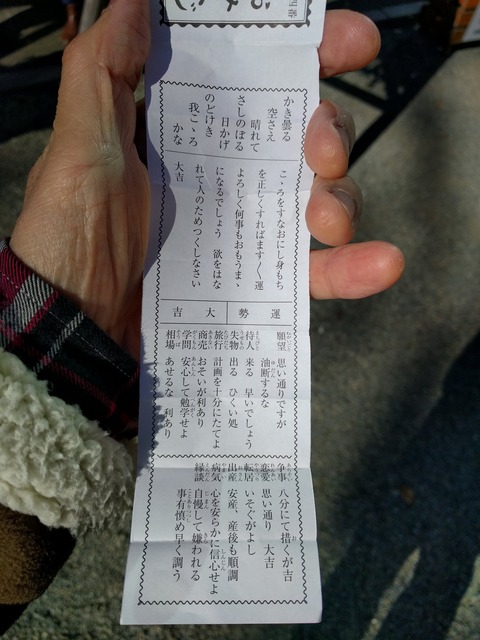 おみくじ
かき曇る
空さえ
晴れて
さしのぼる
日かげ
のどけき
我こゝろ
かな
こゝろをすなおにし身もち
を正しくすればます〱運
よろしく何事もおもうまゝ
になるでしょう 欲をはな
れて人のためつくしなさい
大吉
運勢 大吉
願望 思い通りですが
油断するな
待人 来る 早いでしょう
失物 出る ひくい処
旅行 計画を十分にたてよ
商売 おそいが利あり
学問 安心して勉学せよ
相場 あせるな 利あり
争事 八分にて措くが吉
恋愛 思い通り 大吉
転居 いそぐがよし
出産 安産、産後も順調
病気 心を安らかに信心せよ
縁談 自慢して嫌われる
事有慎め早く調う